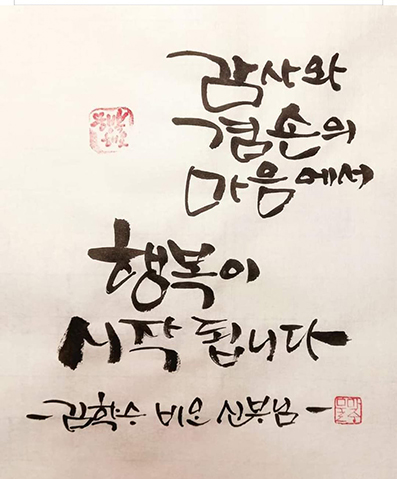 감사와
겸손의
마음에서
행복이
시작 됩니다
-김학수 비오 신부님-